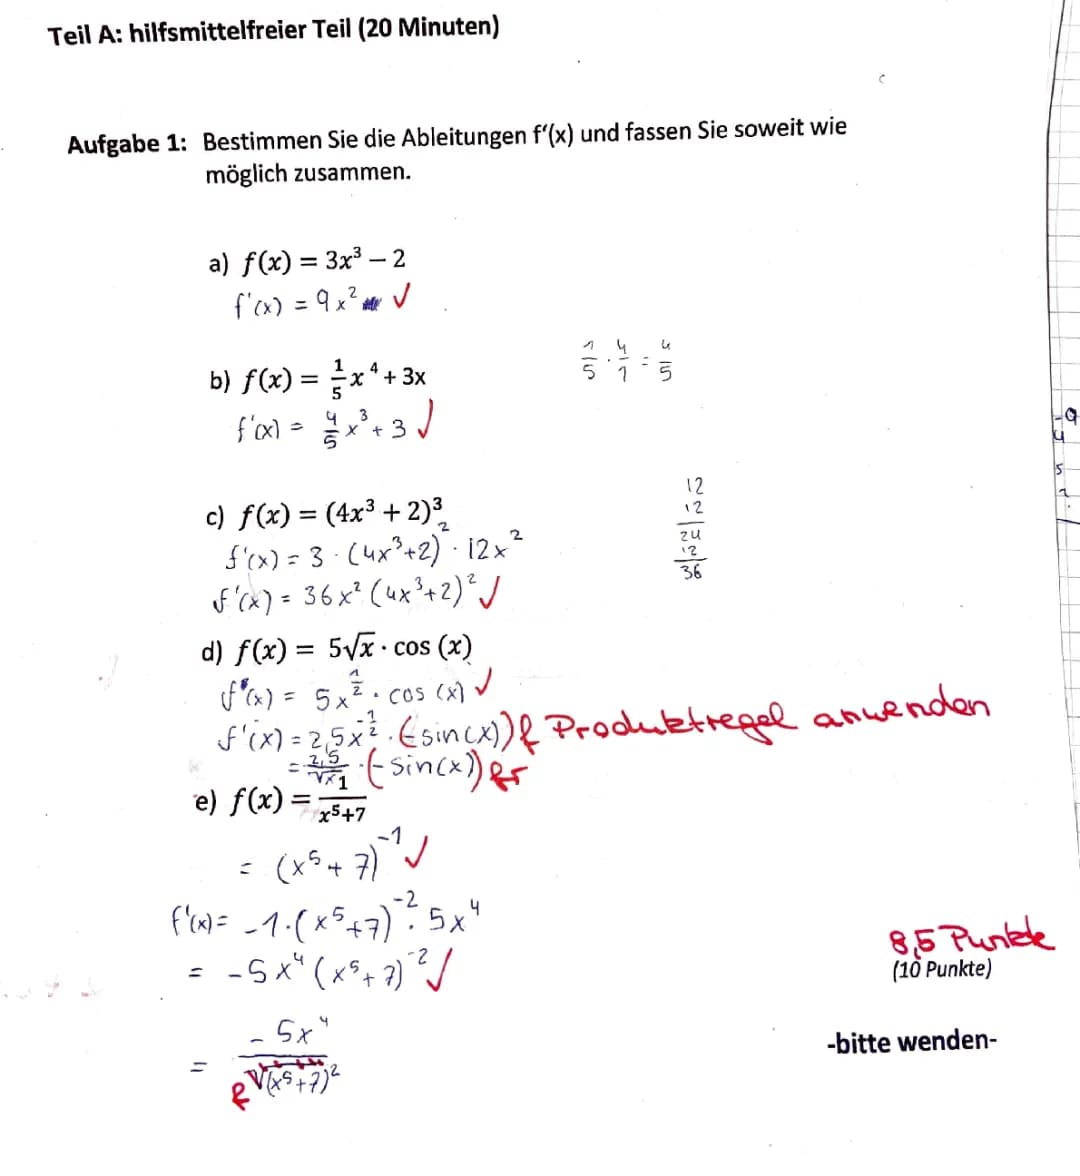 Teil A: hilfsmittelfreier Teil (20 Minuten)
Aufgabe 1: Bestimmen Sie die Ableitungen f'(x) und fassen Sie soweit wie
möglich zusammen.
a) f(x) = 3x³ – 2
f'(x) = 9x² ✓
1/5 · 4/1 = 4/5
b) f(x) = 1/5 x⁴ + 3x
f'(x) = 4/5 x³ + 3 ✓
12
12
24
12
36
c) f(x) = (4x³ + 2)³
f'(x) = 3 · (4x³+2)² · 12x²
f'(x) = 36x² (4x³+2)² ✓
d) f(x) = 5√x · cos (x)
f(x) = 5x^(1/2) · cos (x) ✓
f'(x) = 2,5x^(-1/2) · (-sin(x)) f Produktregel anwenden
= 2,5/√x · (-sin(x)) fr
e) f(x) = 1/(x⁵+7)
= (x⁵+7)⁻¹ ✓
f'(x) = -1·(x⁵+7)⁻² · 5x⁴
= -5x⁴ (x⁵+7)⁻² ✓
8,5 Punkte
(10 Punkte)
= -5x⁴/√(x⁵+7)² f
-bitte wenden-